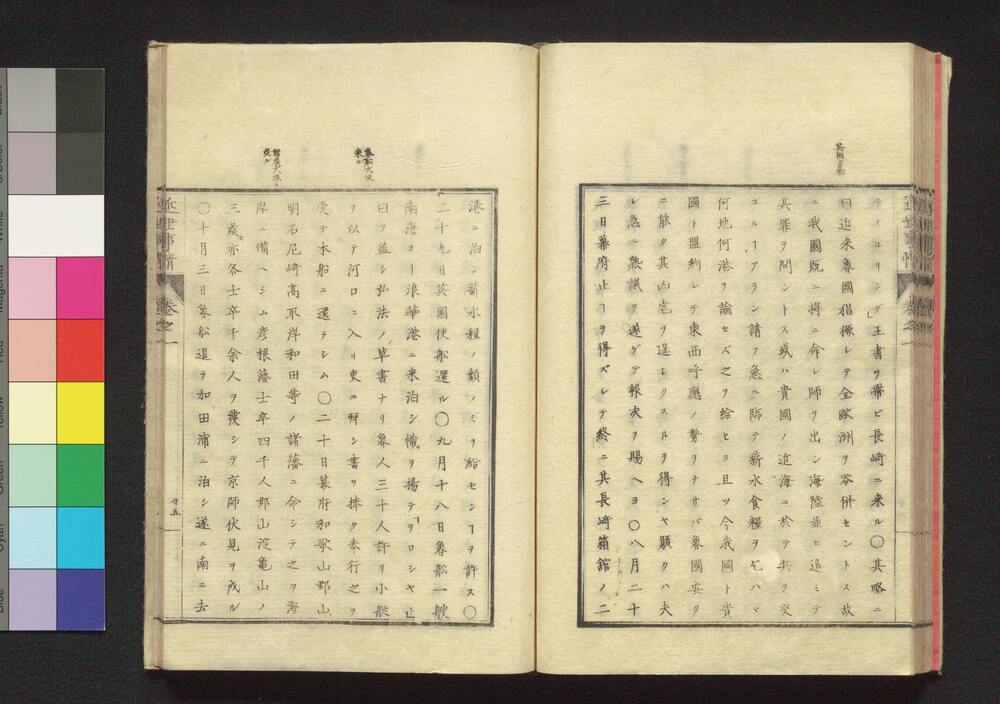 英國書翰
テイルリング」王書ヲ帶ビ長崎ニ来ル〇其略ニ
曰近来魯國猖獗シテ全歐洲ヲ呑併セントス故
ニ我國既ニ將ニ命シ師ヲ出シ海陸並ヒ進ミテ
其罪ヲ問ントス或ハ貴國ノ近海ニ於テ兵ヲ交
ユルヿアラン請フ急ニ臨テ薪水食糧ヲ乞ハヾ
何地何港ヲ論セズ之ヲ給セヨ且ツ今我國ト貴
國ト盟約シテ東西呼應ノ勢ヲナサバ魯國安ク
ニ能ク其凶虐ヲ逞シクスルヲ得ンヤ願クハ夫
レ急ニ熟議ヲ遂ゲテ報决ヲ賜ヘヨ〇八月二十
三日幕府止ヿヲ得ズシテ終ニ其長崎箱館ノ二
近世事情
卷之一
魯船大坂来ル
諸居大坂ヲ戍ル
港ニ泊シ薪水糧ノ類ノミヲ給セシヿヲ許ス〇
二十九日英國使船還ル〇九月十八日魯船一艘
南海ヨリ浪華港ニ来泊シ幟ヲ揚テヲロシヤ止
曰フ蓋シ払法ノ草書ナリ魯人三十人許リ小舩
ヲ以テ河口ニ入リ吏ニ拜シ書ヲ捧ク奉行之ヲ
受テ本船ニ還ラシム〇二十日幕府和歌山郡山
明石尼崎高取岸和田等ノ諸藩ニ命シテ之ヲ海
岸ニ備ヘシム彦根藩士卒四千人郡山淀亀山ノ
三藩亦各士卒千余人ヲ發シテ京師伏見ヲ戍ル
〇十月三日魯船退ヲ加田浦ニ泊シ遂ニ南ニ去
近世事情
卷之一
廿五